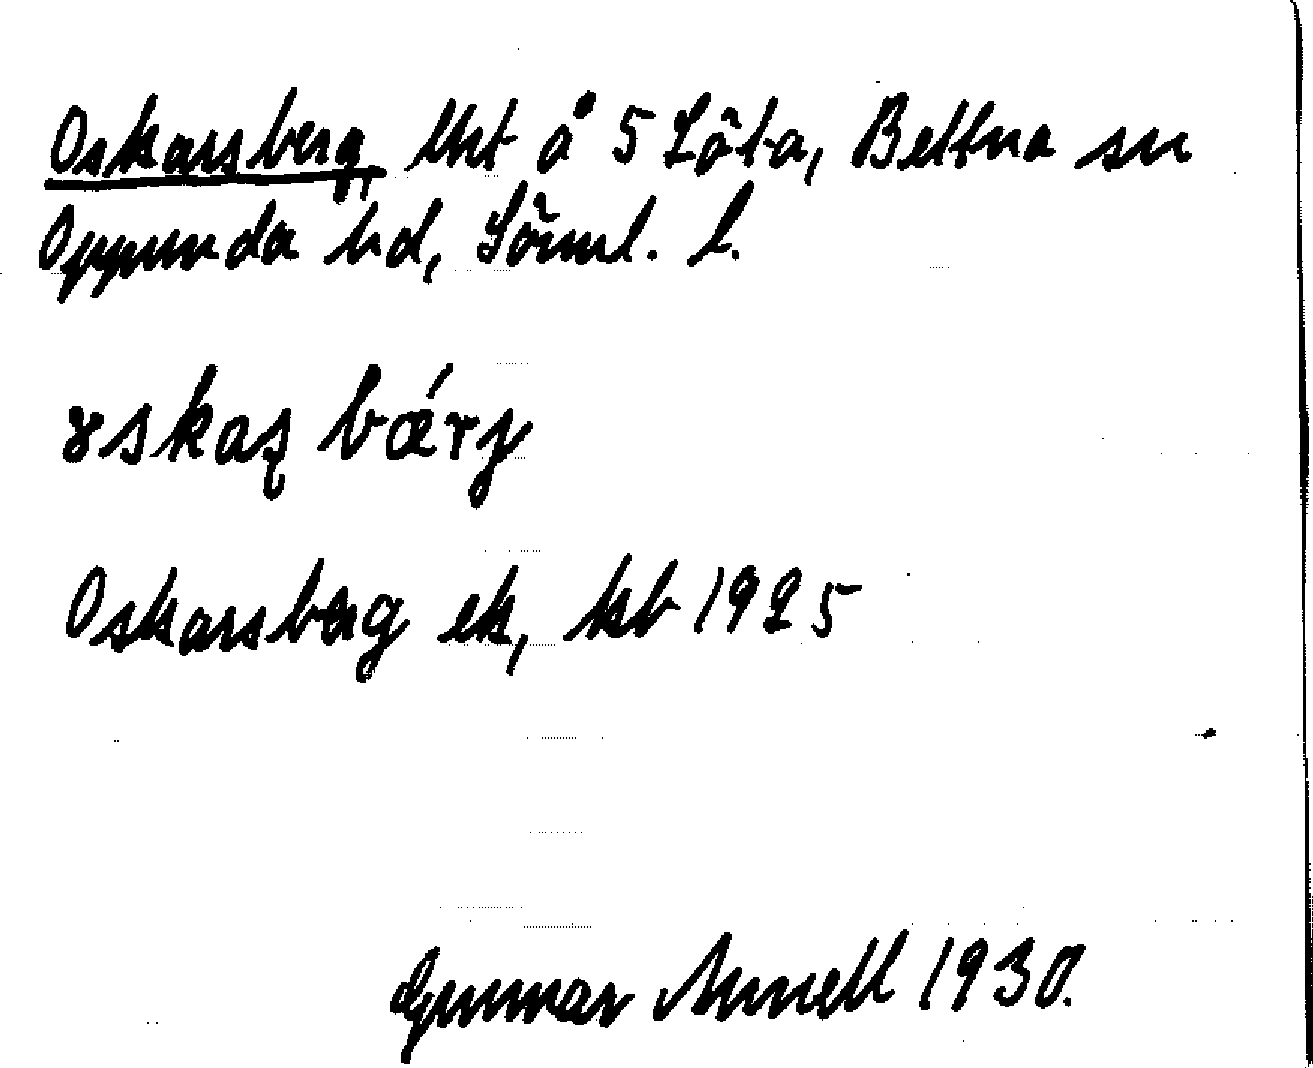 Oskarsberg, lht å 5 Löta, Bettna sn
Oppunda hd, Söml. l.
ɤskaʂ bǽrj
Oskarsberg ek, kb 1925
Gunnar Annell 1930.